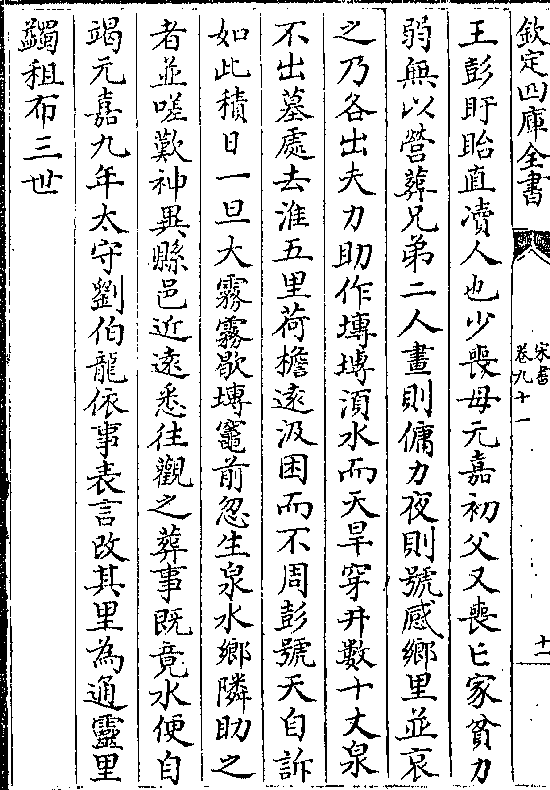 欽定四庫全書
宋書
卷九十一
十二
王彭盱眙直瀆人也少喪母元嘉初父又喪亡家貧力
弱無以營葬兄弟二人晝則傭力夜則號感鄉里並哀
之乃各出夫力助作塼塼須水而天旱穿井數十丈泉
不出墓處去淮五里荷檐遠汲困而不周彭號天自訴
如此積日一旦大霧霧歇塼竈前忽生泉水鄉隣助之
者並嗟歎神異縣邑近遠悉往觀之葬事既竟水便自
竭元嘉九年太守劉伯龍依事表言改其里為通靈里
蠲租布三世